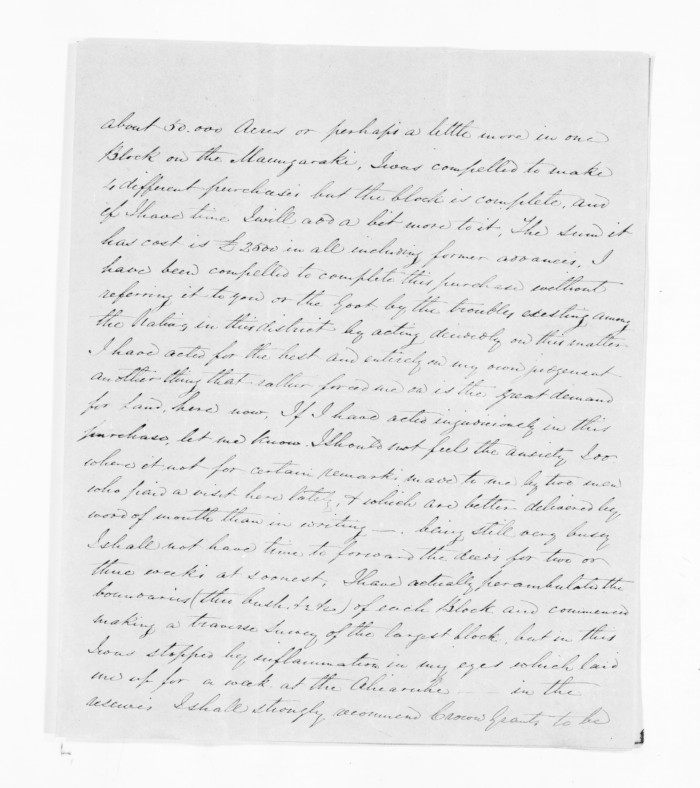 about 50.000 Acres or perhaps a little more in one
Block on the Maungaraki, I was compelled to make
4 different purchases but the block is complete, and
if I have time I will add a bit more to it, The sum it
has cost is £2800 in all including former advances. I
have been compelled to complete this purchase without
referring it to you or the Govt by the troubles existing among
the Natives in this district by acting decisively on this matter
I have acted for the best and entirely on my own judgement
another thing that rather forced me on is the great demand
for Land, here now, If I have acted injudiciously in this
purchase, let me know I should not feel the anxiety I do
where it not for certain remarks made to me by two men
who paid a visit here lately, & which are better delivered by
word of mouth than in writing —. being still very busy
I shall not have time to forward the deeds for two or
three weeks at soonest, I have actually perambulated the
boundaries (thro bush &c &c) of each Block and commenced
making a traverse Survey of the largest block, but in this
I was stopped by inflammation in my eyes which laid
me up for a week at the — — in the
reserves I shall strongly recommend Crown Grants to be